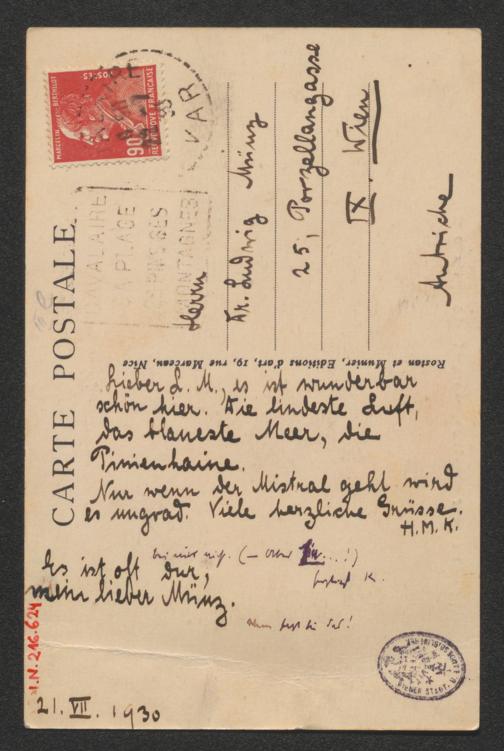 CARTE POSTALE
Rostan et Munier, Editions d'art, 19, rue Marceau, Nice
POSTES
MARCELLIN BERTHELOT
90c
REPUBLIQUE FRANÇAISE
VAR
CAVALAIRE
SA PLAGE
SES PINÈDES
MONTAGNES
Herrn
Dr. Ludwig Münz
25, Porzellangasse
IX. Wien
Autriche
Lieber L. M., es ist wunderbar
schön hier. Die lindeste Luft,
das blaueste Meer, die
Pinienhaine.
Nur wenn der Mistral geht wird
es ungrad. Viele herzliche Grüsse.
H. M. K.
Es ist oft
mein lieber Münz.
21. VII. 1930
I.N. 216.624